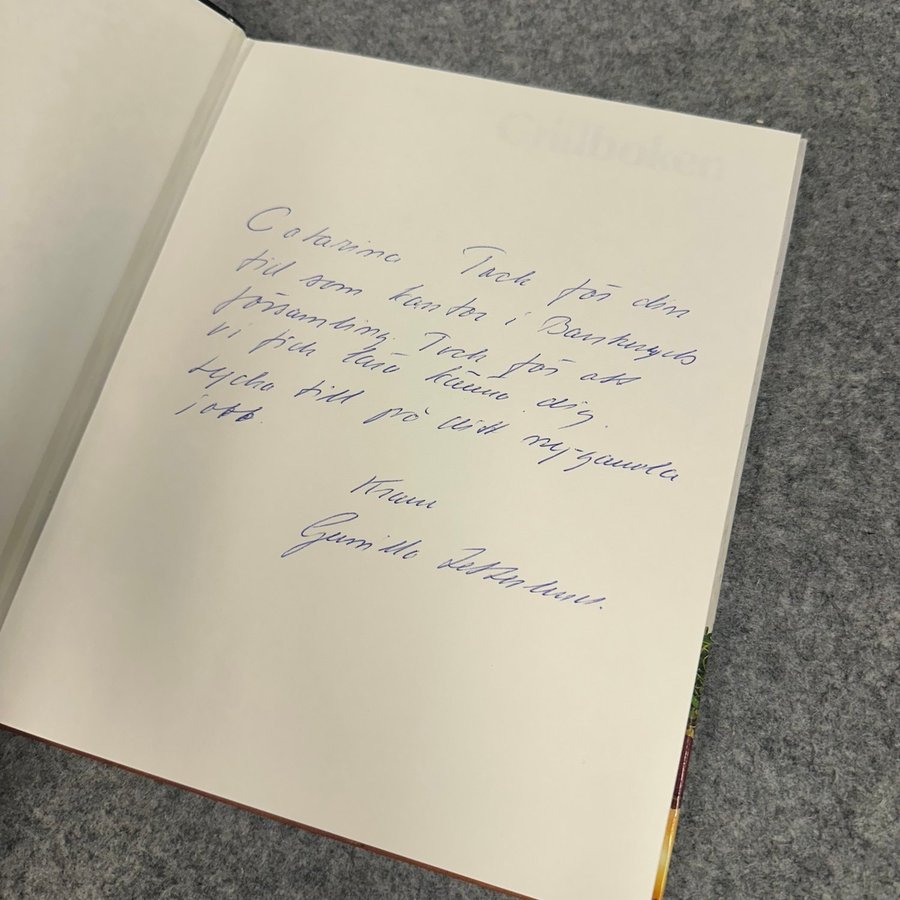 Grillboken
Catarina Tack för din
tid som kantor i Bankeryds
församling. Tack för att
vi fick lära känna dig.
Lycka till på ditt ny-gamla
jobb.
Kram
Gunilla Zetterlund.